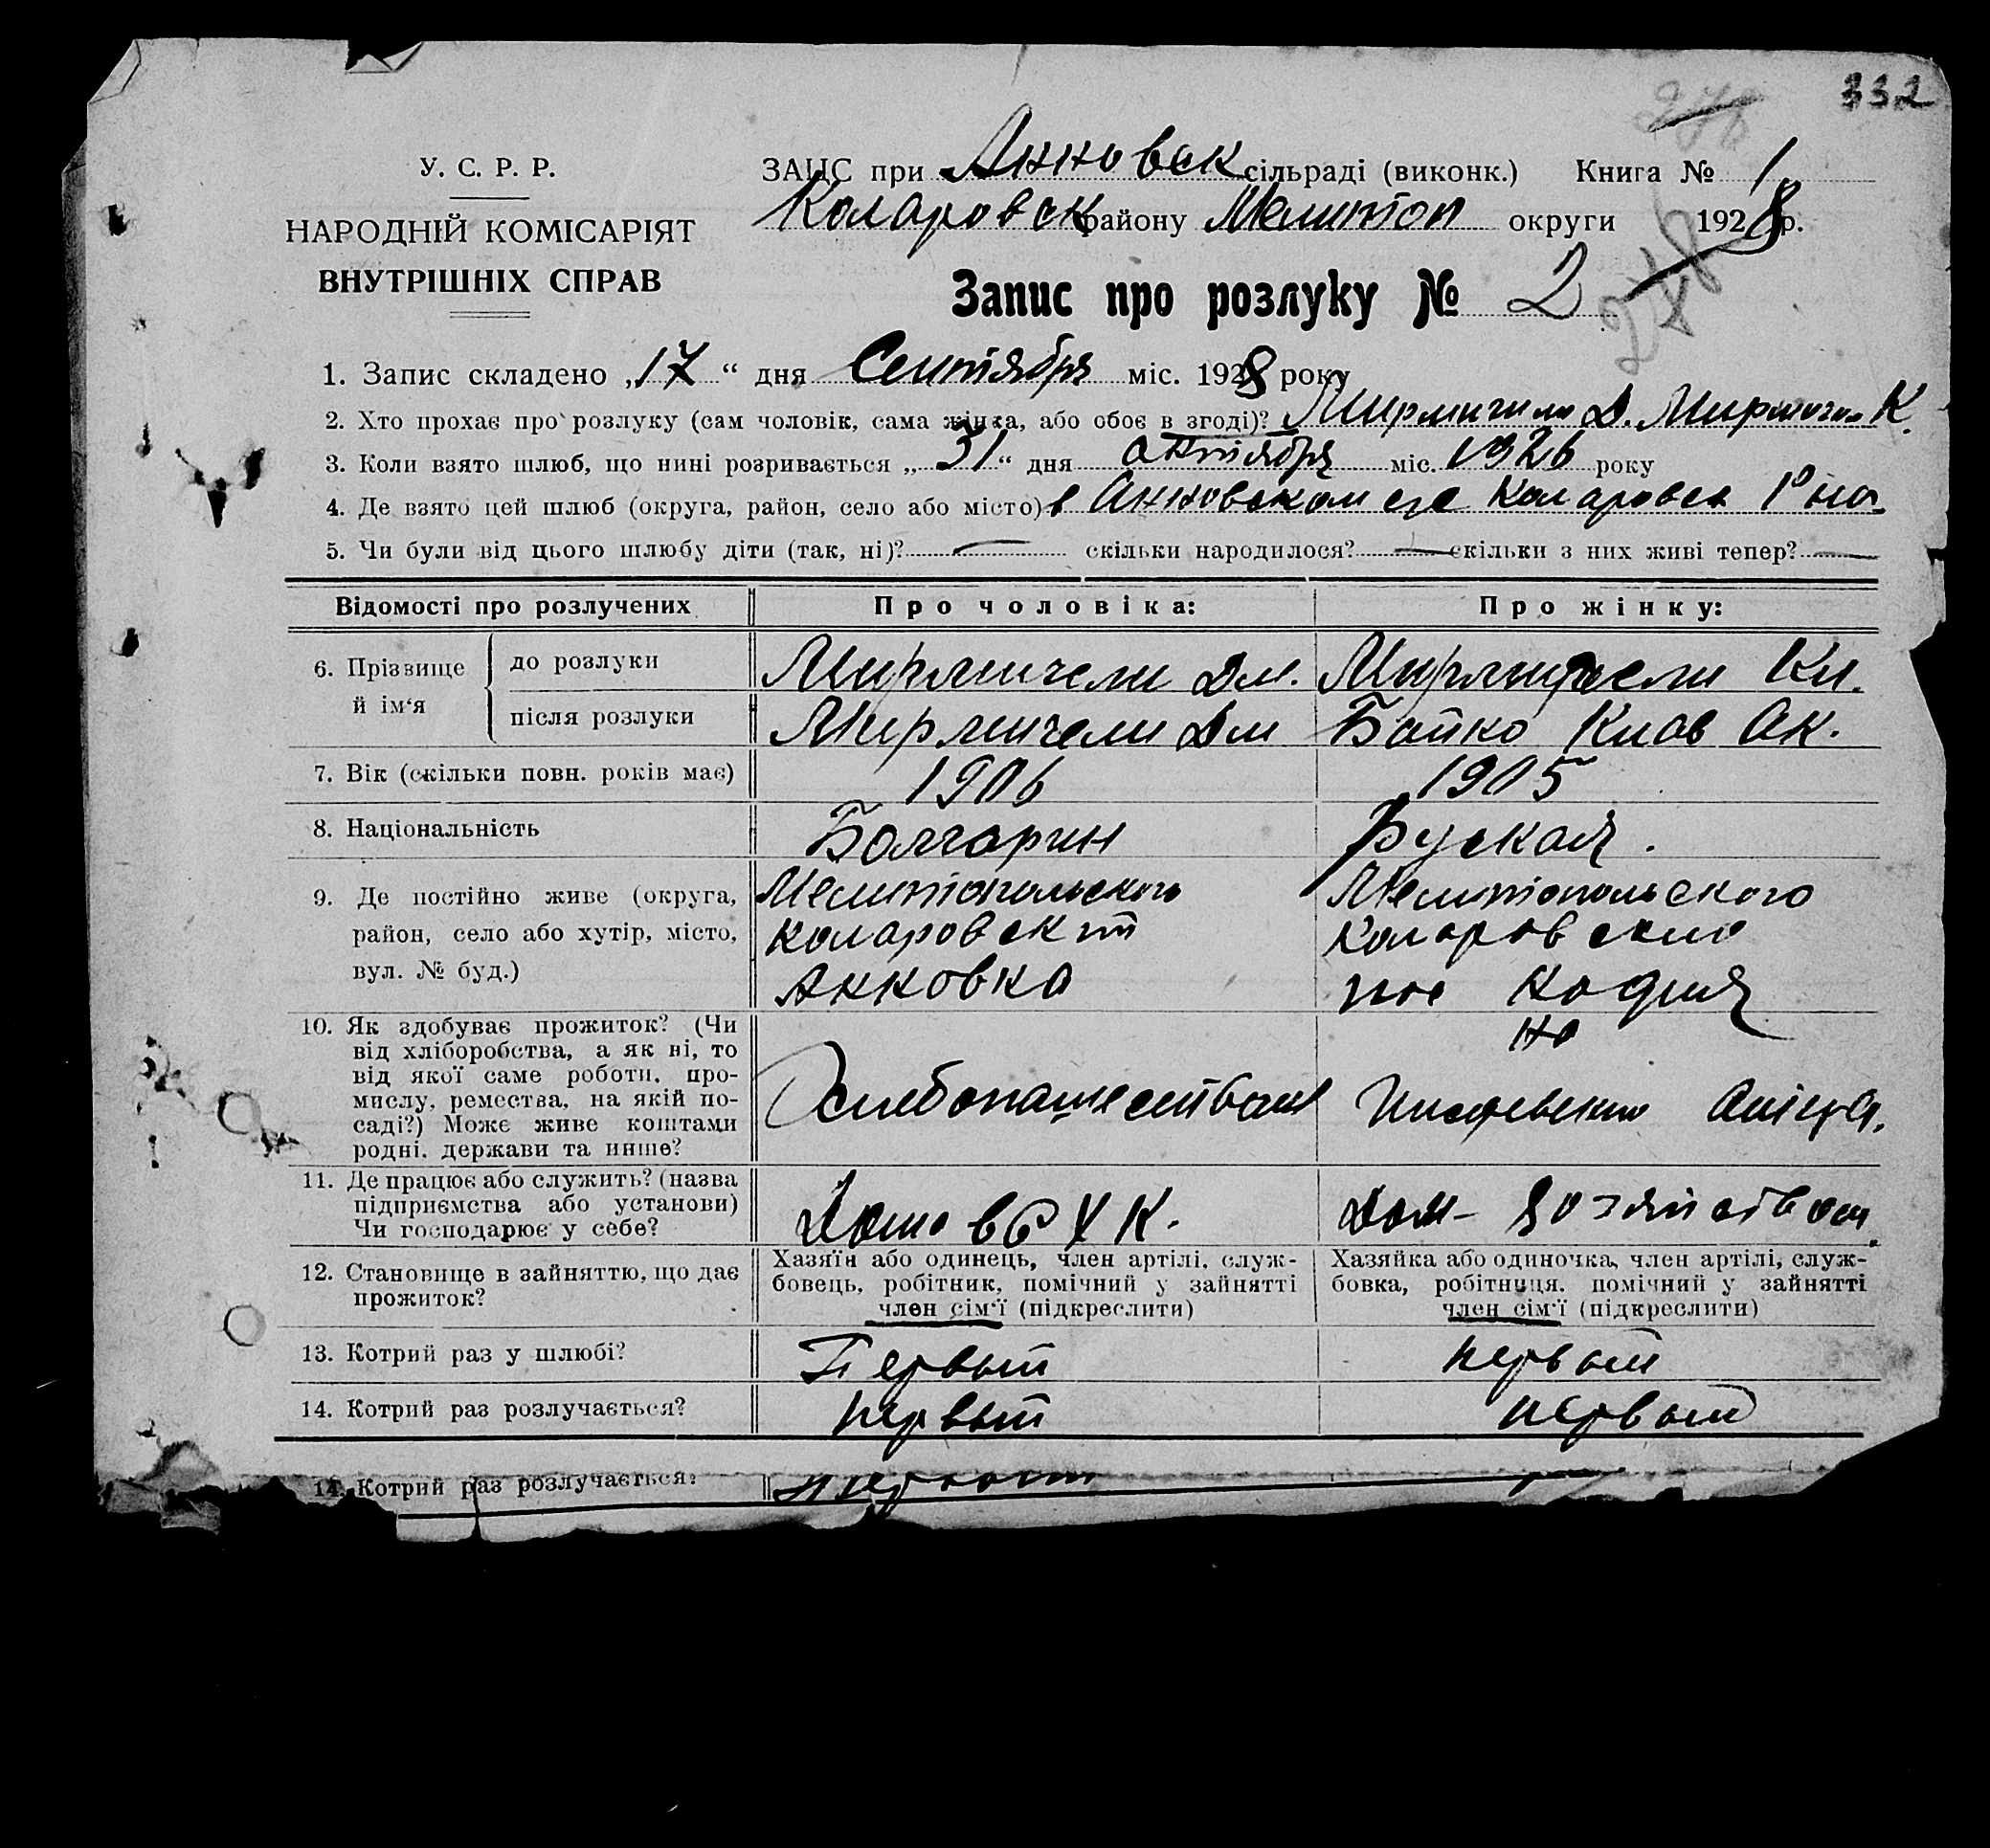 332
У. С. Р. Р.
НАРОДНІЙ КОМІСАРІЯТ
ВНУТРІШНІХ СПРАВ
ЗАЦС при Анновск сільраді (виконк.) Книга № 1
Коларовск району Мелитоп округи 1928 р.
Запис про розлуку № 2
1. Запис складено „17“ дня Сентября міс. 1928 року
2. Хто прохає про розлуку (сам чоловік, сама жінка, або обоє в згоді)? Мирмичели Д. К.
3. Коли взято шлюб, що нині розривається „31“ дня октября міс. 1926 року
4. Де взято цей шлюб (округа, район, село або місто) в Анновском с/с Коларовск Р на
5. Чи були від цього шлюбу діти (так, ні)? — скільки народилося? — скільки з них живі тепер? —
Відомості про розлучених Про чоловіка: Про жінку:
6. Прізвище й ім‘я
до розлуки Мирмичели Дм. Мирмичели Кл.
після розлуки Мирмичели Дм Бойко Клав Ак.
7. Вік (скільки повн. років має) 1906 1905
8. Національність Болгарин Руская.
9. Де постійно живе (округа, Мелитопольского Мелитопольского
район, село або хутір, місто, Коларовск Коларовско
вул. № буд.) Анновка пос
10. Як здобуває прожиток? (Чи
від хліборобства, а як ні, то
від якої саме роботи, про-
мислу, ремества, на якій по-
саді?) Може живе коштами
родні, держави та инше?
Хлебопашеством
11. Де працює або служить? (назва
підприємства або установи)
Чи господарює у себе?
Дом- хозяйством
12. Становище в зайняттю, що дає
прожиток?
Хазяїн або одинець, член артілі, служ-
бовець, робітник, помічний у зайнятті
член сім‘ї (підкреслити)
Хазяйка або одиночка, член артілі, служ-
бовка, робітниця, помічний у зайнятті
член сім‘ї (підкреслити)
13. Котрий раз у шлюбі? Первый первый
14. Котрий раз розлучається? первый первый
14. Котрий раз розлучається?